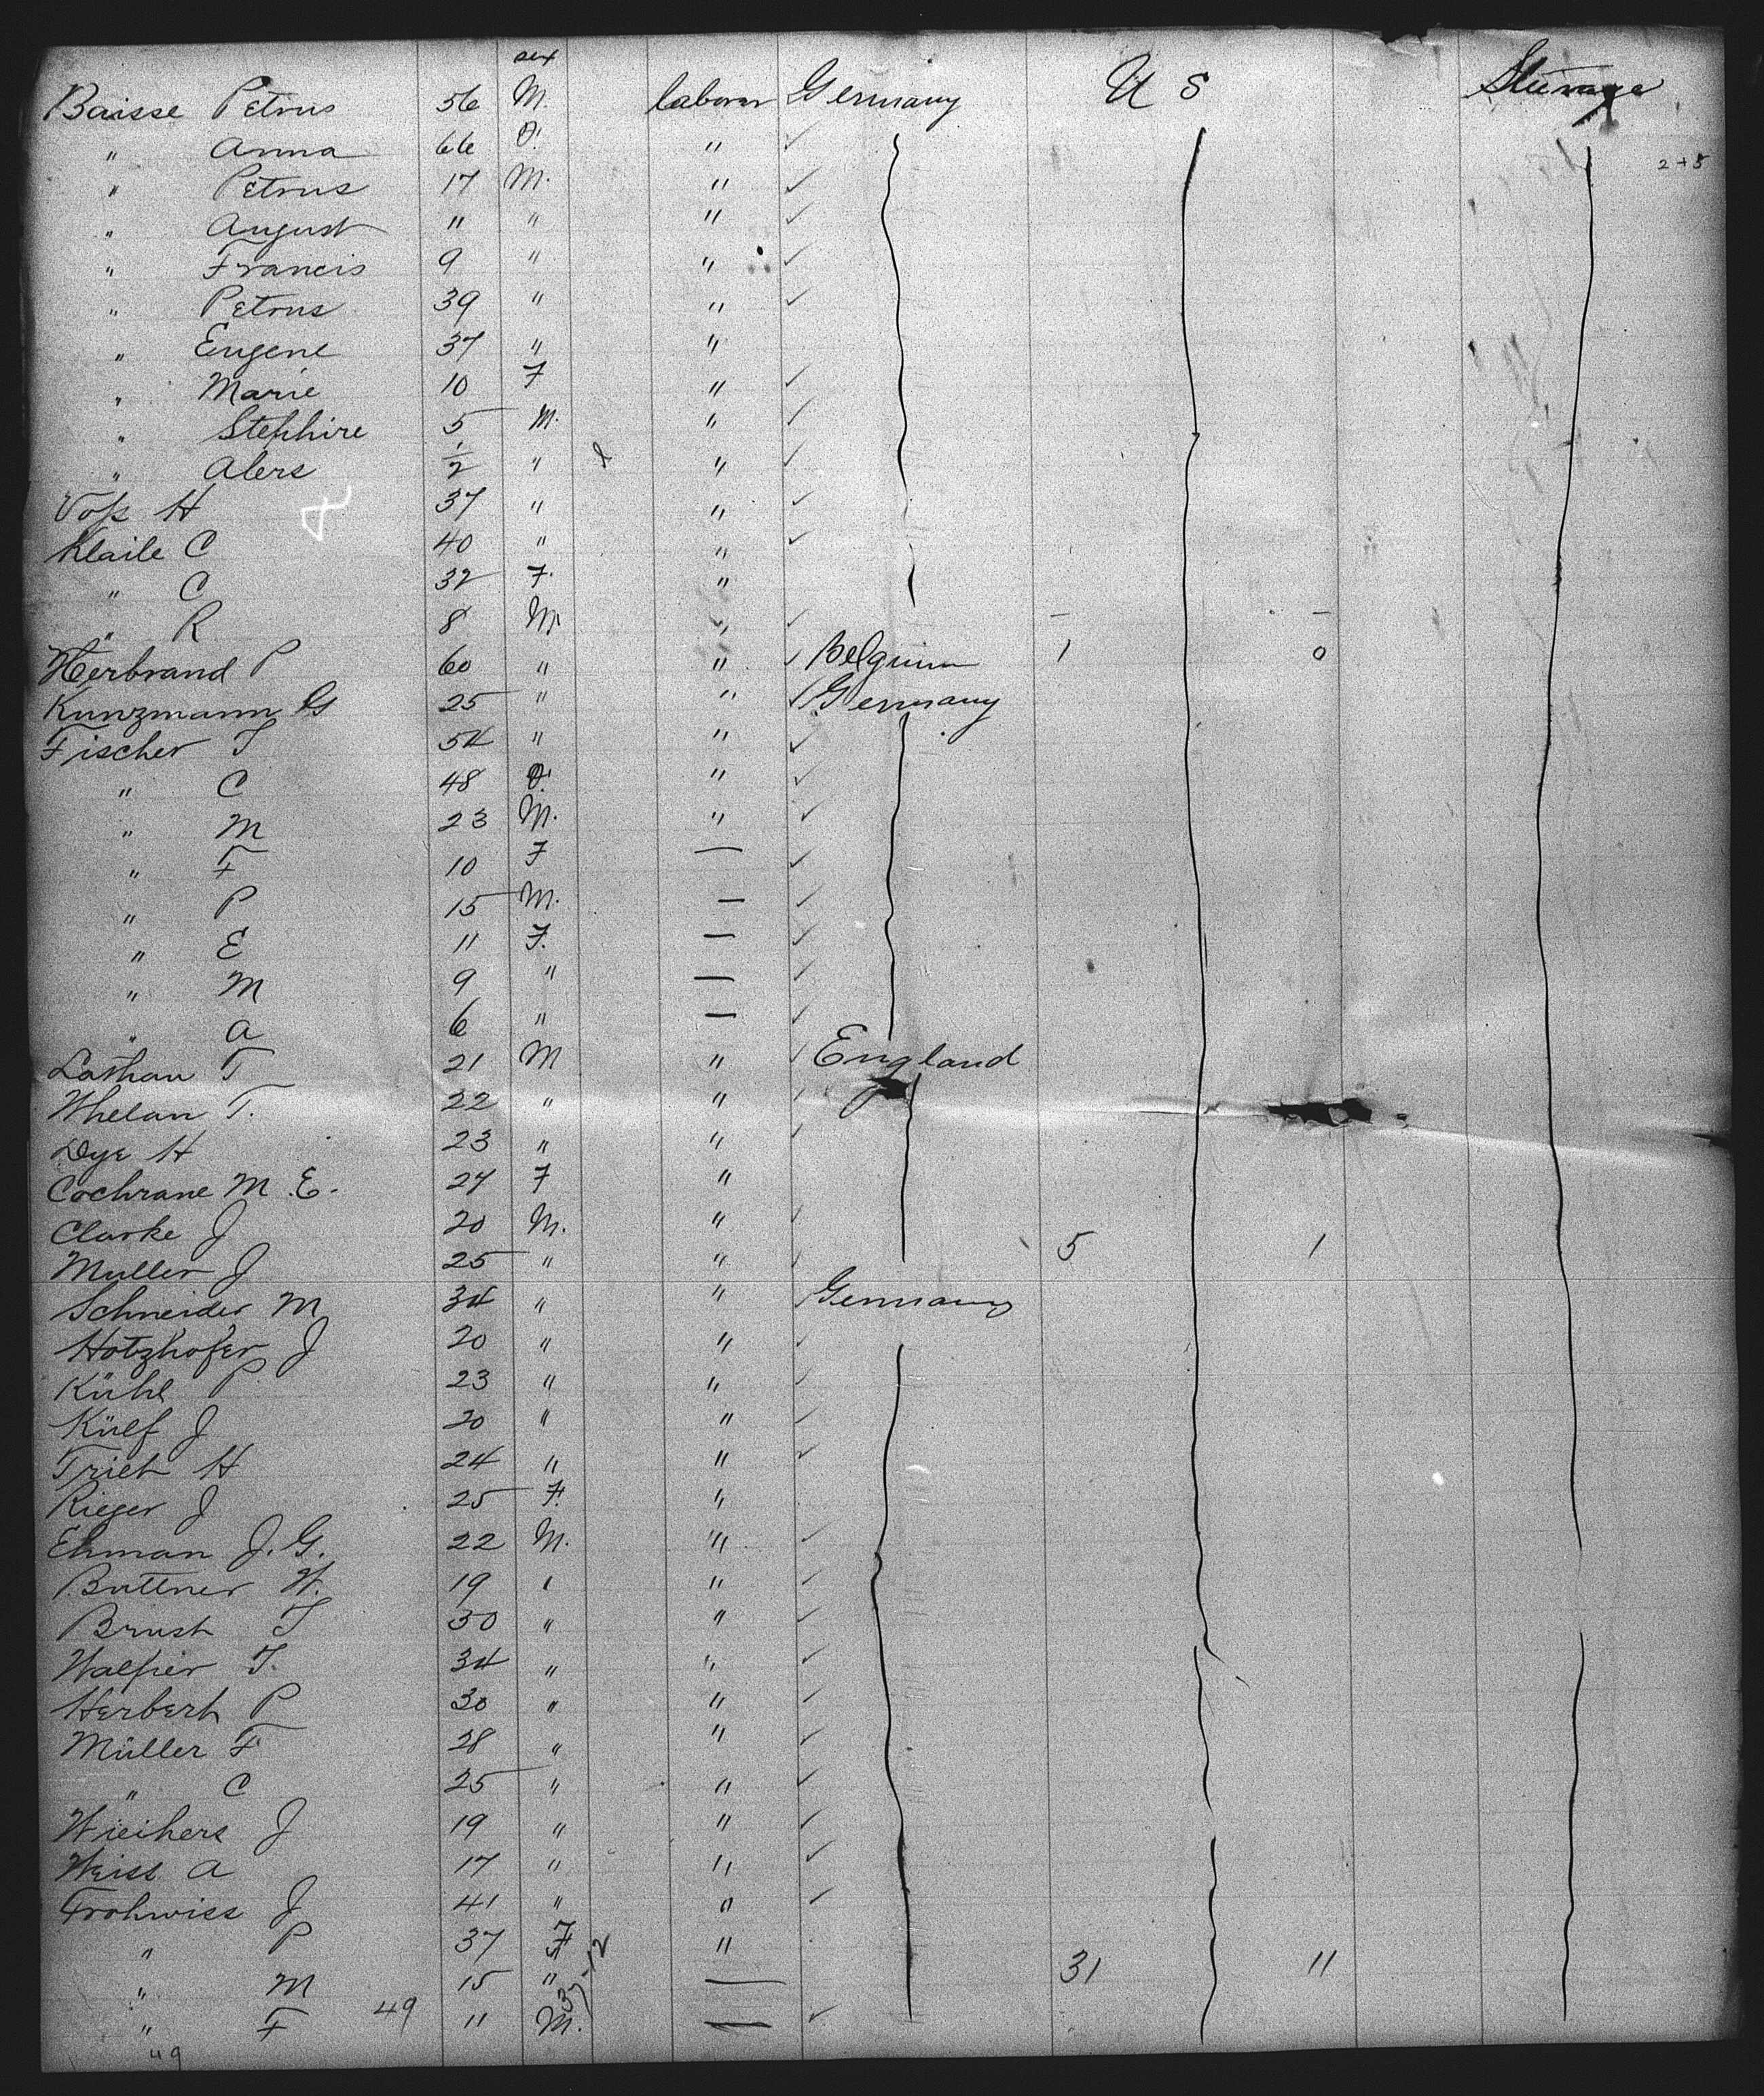 sex
Baisse Petrus 56 M. laborer Germany U S Steerage
" Anna 66 F. " 2+5
" Petrus 17 M. "
" August " " "
" Francis 9 " "
" Petrus 39 " "
" Eugene 37 " "
" Marie 10 F "
" Stephire 5 M. "
" Alers 1/2 " "
Voss H 37 " "
Klaile C 40 " "
" C 32 F. "
" R 8 M. " — —
Herbrand P 60 " " Belgium 1 0
Kunzmann G 25 " " Germany
Fischer T 54 " "
" C 48 F. "
" M 23 M. "
" F 10 F —
" P 15 M. —
" E 11 F. —
" M 9 " —
" a 6 " —
Lathan T 21 M " England
Whelan T. 22 " "
Dye H 23 " "
Cochrane M. E. 27 F "
Clarke J 20 M. " 5 1
Muller J 25 " "
Schneider M 34 " " Germany
Hotzhofer J 20 " "
Kühl P 23 " "
Külf J 20 " "
Trieh H 24 " "
Rieger J 25 F. "
Ehman J. G. 22 M. "
Buttner W. 19 " "
Brush T 30 " "
Walpier T. 34 " "
Herbert P 30 " "
Müller F 28 " "
" C 25 " "
Wieihers J 19 " "
Weiss a 17 " "
Frohwiss J 41 " "
" P 37 F "
" M 15 " — 31 11
" F 49 11 M. — 37-12
49